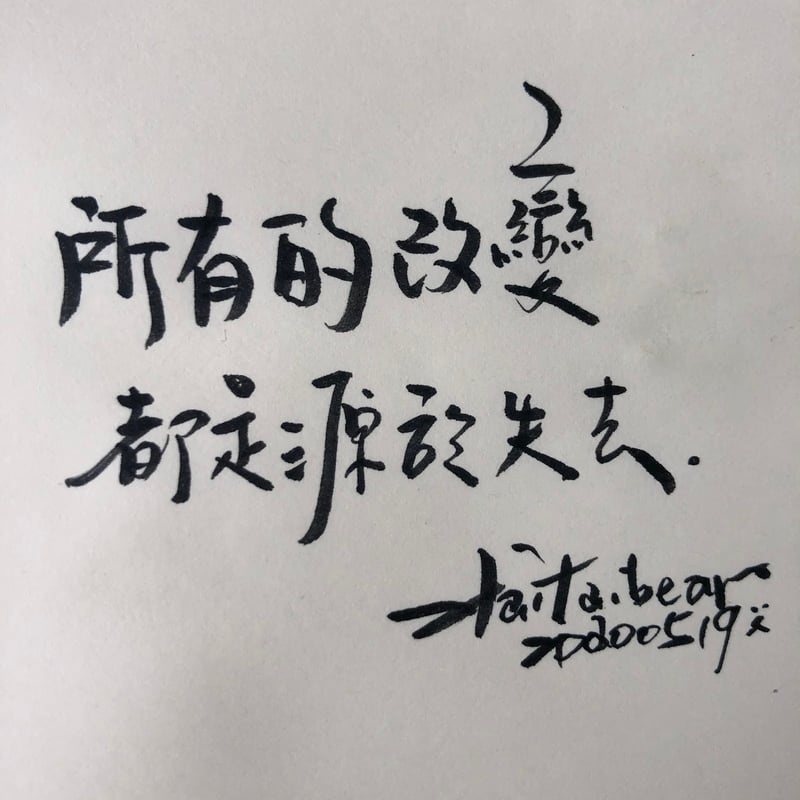 所有的改變
都是源於失去.
taitai.bear
20200519